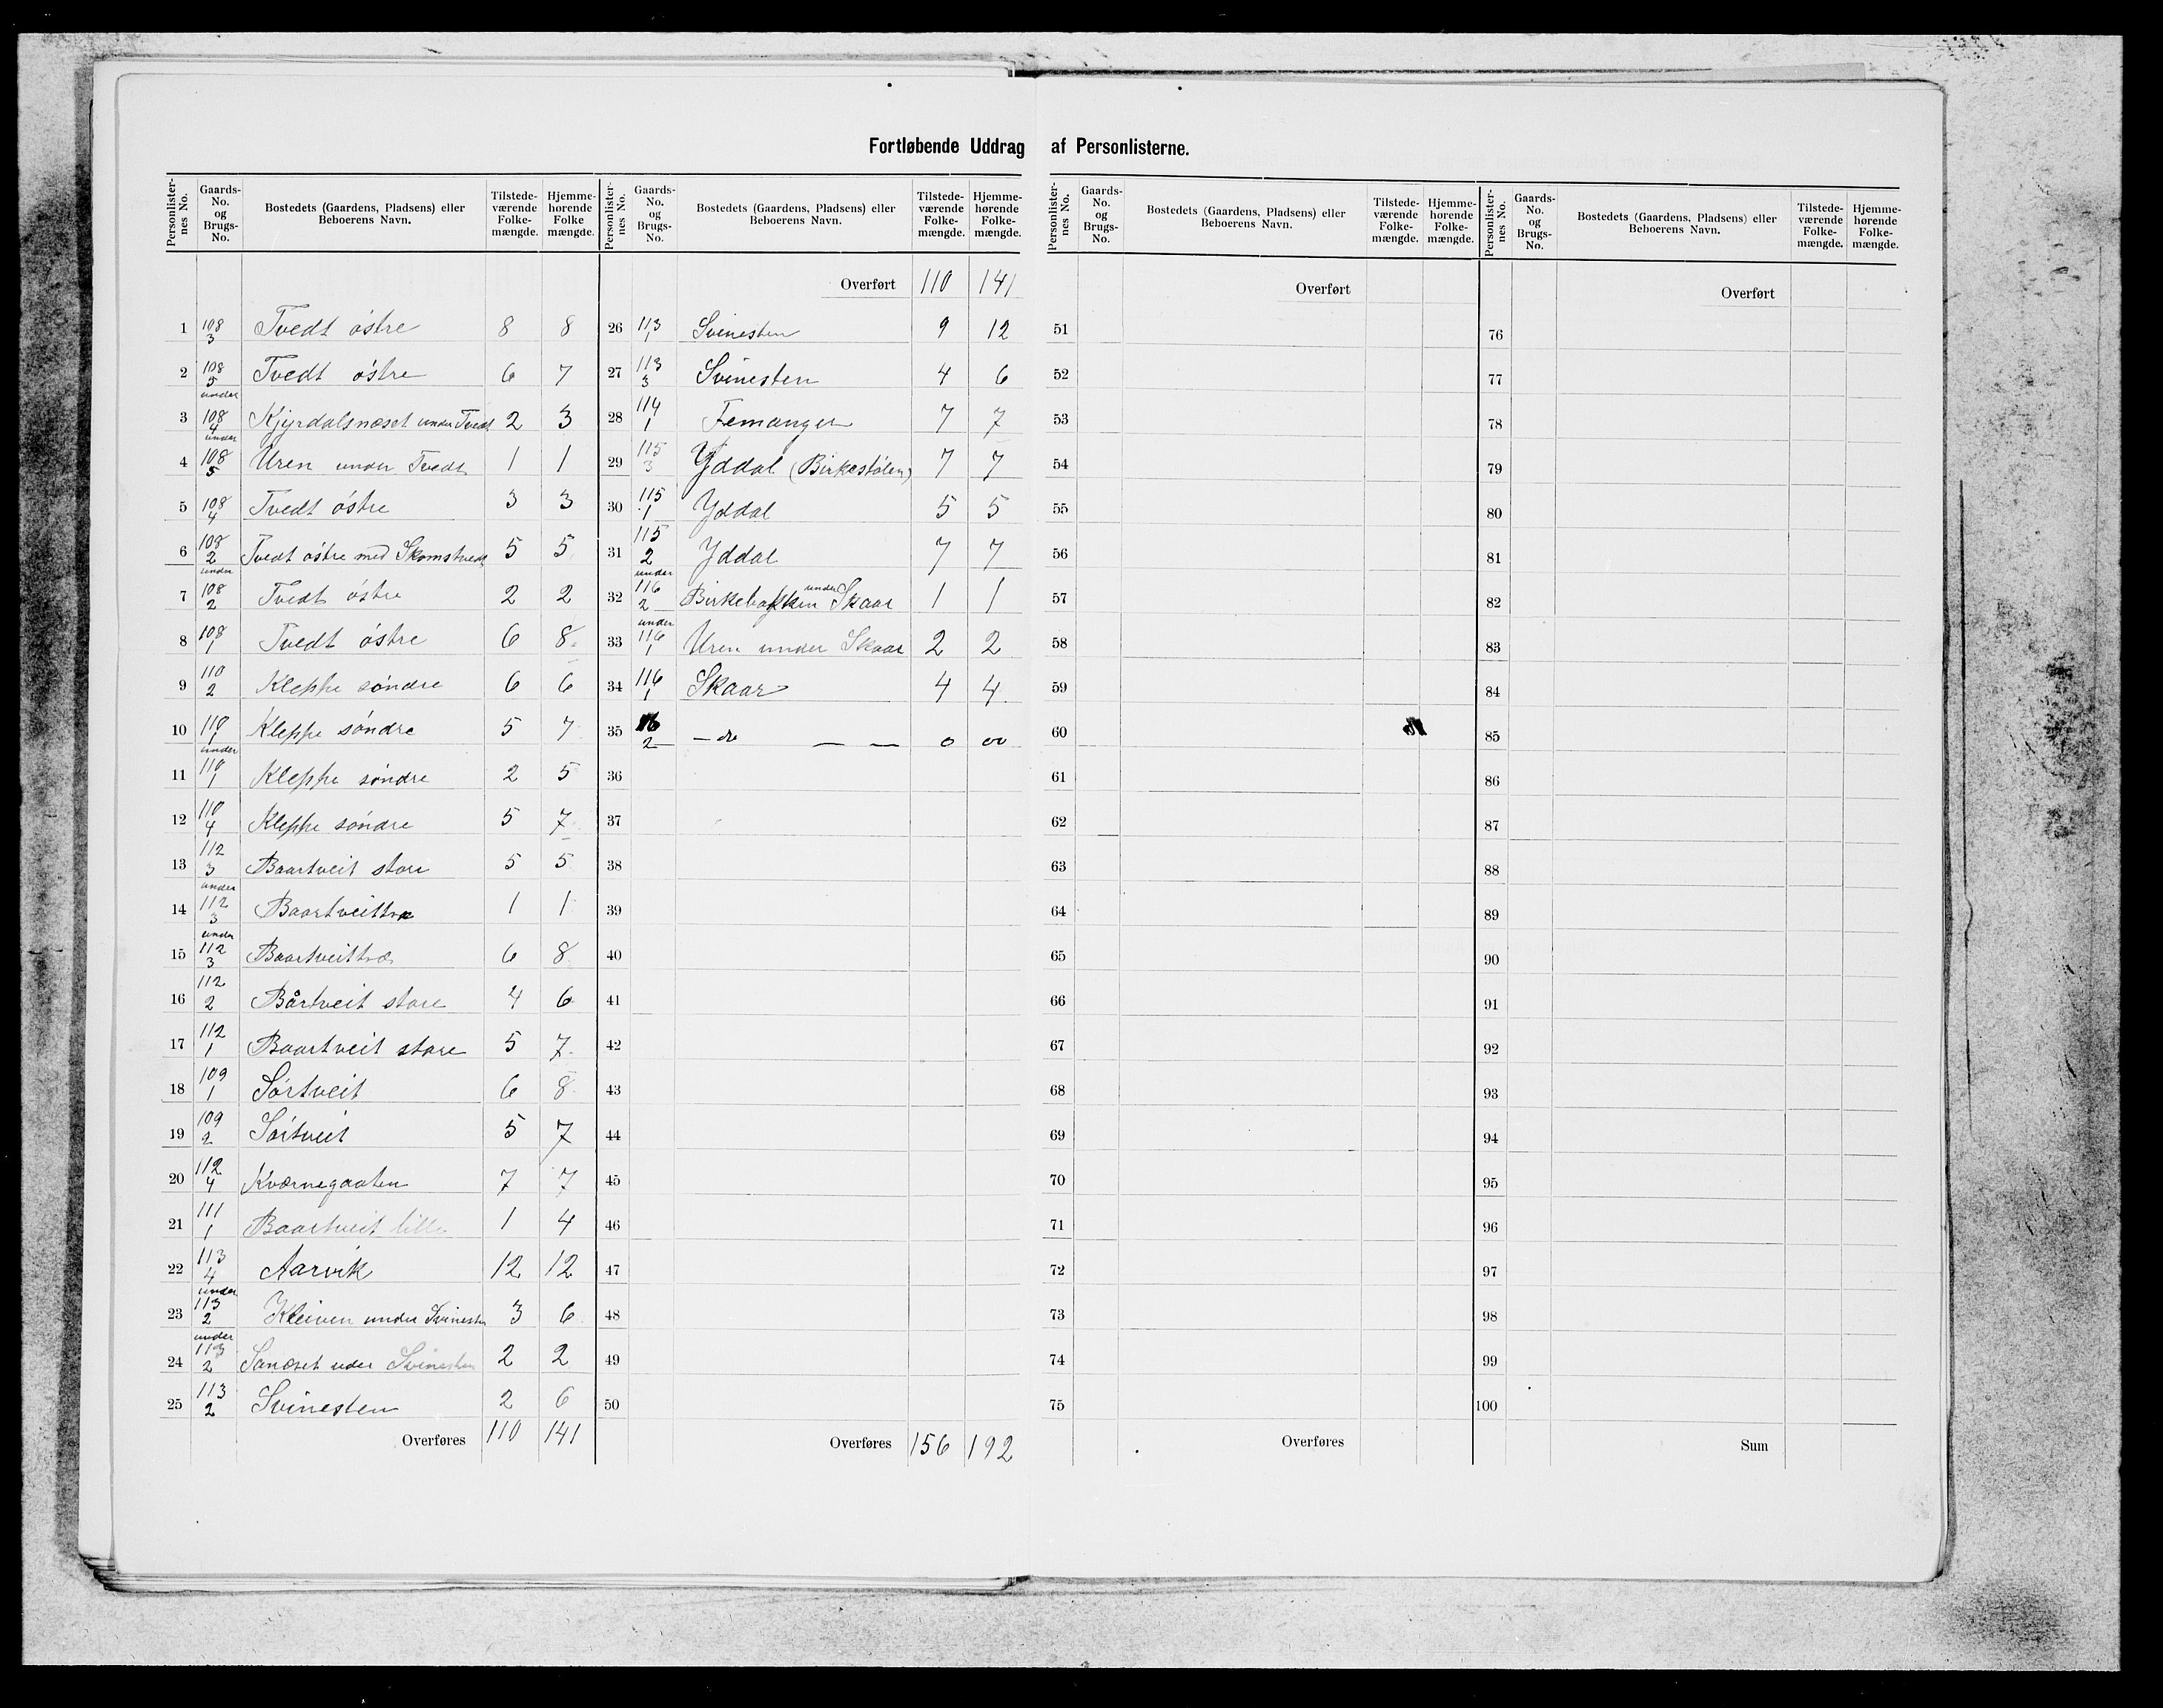 Fortløbende Uddrag af Personlisterne.
Personlister-nes No. | Gaards-No. og Brugs-No. | Bostedets (Gaardens, Pladsens) eller Beboerens Navn. | Tilstede-værende Folke-mængde. | Hjemme-hørende Folke mængde.
1 | 108/3 | Tvedt østre | 8 | 8
2 | 108/5 | Tvedt østre | 6 | 7
3 | under 108/4 | Kjyrdalsnæset under Tvedt | 2 | 3
4 | under 108/5 | Uren under Tvedt | 1 | 1
5 | 108/4 | Tvedt østre | 3 | 3
6 | 108/2 | Tvedt østre med Skomstvedt | 5 | 5
7 | under 108/2 | Tvedt østre | 2 | 2
8 | 108/1 | Tvedt østre | 6 | 8
9 | 110/2 | Kleppe søndre | 6 | 6
10 | 110/1 | Kleppe søndre | 5 | 7
11 | under 110/1 | Kleppe søndre | 2 | 5
12 | 110/4 | Kleppe søndre | 5 | 7
13 | 112/3 | Baartveit store | 5 | 5
14 | under 112/3 | Baartveittræ | 1 | 1
15 | under 112/3 | Baartveittræ | 6 | 8
16 | 112/2 | Bårtveit store | 4 | 6
17 | 112/1 | Baartveit store | 5 | 7
18 | 109/1 | Sørtveit | 6 | 8
19 | 109/2 | Sørtveit | 5 | 7
20 | 112/4 | Kværnegaaten | 7 | 7
21 | 111/1 | Baartveit lille | 1 | 4
22 | 113/4 | Aarvik | 12 | 12
23 | under 113/2 | Kleiven under Svinesten | 3 | 6
24 | under 113/2 | Sanæset uder Svinesten | 2 | 2
25 | 113/2 | Svinesten | 2 | 6
Overføres | 110 | 141
Personlister-nes No. | Gaards-No. og Brugs-No. | Bostedets (Gaardens, Pladsens) eller Beboerens Navn. | Tilstede-værende Folke-mængde. | Hjemme-hørende Folke-mængde.
Overført | 110 | 141
26 | 113/1 | Svinesten | 9 | 12
27 | 113/3 | Svinesten | 4 | 6
28 | 114/1 | Femanger | 7 | 7
29 | 115/3 | Yddal (Birkestølen) | 7 | 7
30 | 115/1 | Yddal | 5 | 5
31 | 115/2 | Yddal | 7 | 7
32 | under 116/2 | Birkebakken under Skaar | 1 | 1
33 | under 116/1 | Uren under Skaar | 2 | 2
34 | 116/1 | Skaar | 4 | 4
35 | 116/2 | — do — — | 0 | 00
36
37
38
39
40
41
42
43
44
45
46
47
48
49
50
Overføres | 156 | 192
Personlister-nes No. | Gaards-No. og Brugs-No. | Bostedets (Gaardens, Pladsens) eller Beboerens Navn. | Tilstede-værende Folke-mængde. | Hjemme-hørende Folke-mængde.
Overført
51
52
53
54
55
56
57
58
59
60
61
62
63
64
65
66
67
68
69
70
71
72
73
74
75
Overføres
Personlister-nes No. | Gaards-No. og Brugs-No. | Bostedets (Gaardens, Pladsens) eller Beboerens Navn. | Tilstede-værende Folke-mængde. | Hjemme-hørende Folke-mængde.
Overført
76
77
78
79
80
81
82
83
84
85
86
87
88
89
90
91
92
93
94
95
96
97
98
99
100
Sum